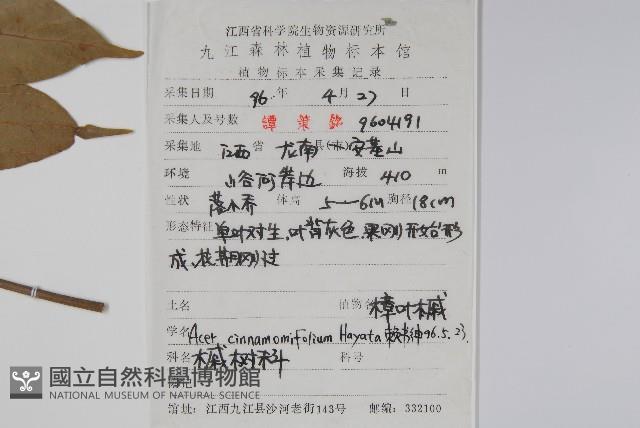 江西省科学院生物资源研究所
九江森林植物标本馆
植物标本采集记录
采集日期 96 年 4 月 27 日
采集人及号数 譚策銘 9604191
采集地 江西 省 龙南 县(市) 安基山
环境 山谷河岸边 海拔 410 m
性状 落小乔 体高 5—6m 胸径 18cm
形态特征 单叶对生,叶背灰色,果刚开始形
成,花期刚过
土名 植物名 樟叶槭
学名 Acer cinnamomifolium Hayata 96.5.23
科名 槭树科 科号
附记
國立自然科學博物館
NATIONAL MUSEUM OF NATURAL SCIENCE
馆址:江西九江县沙河老街143号 邮编:332100